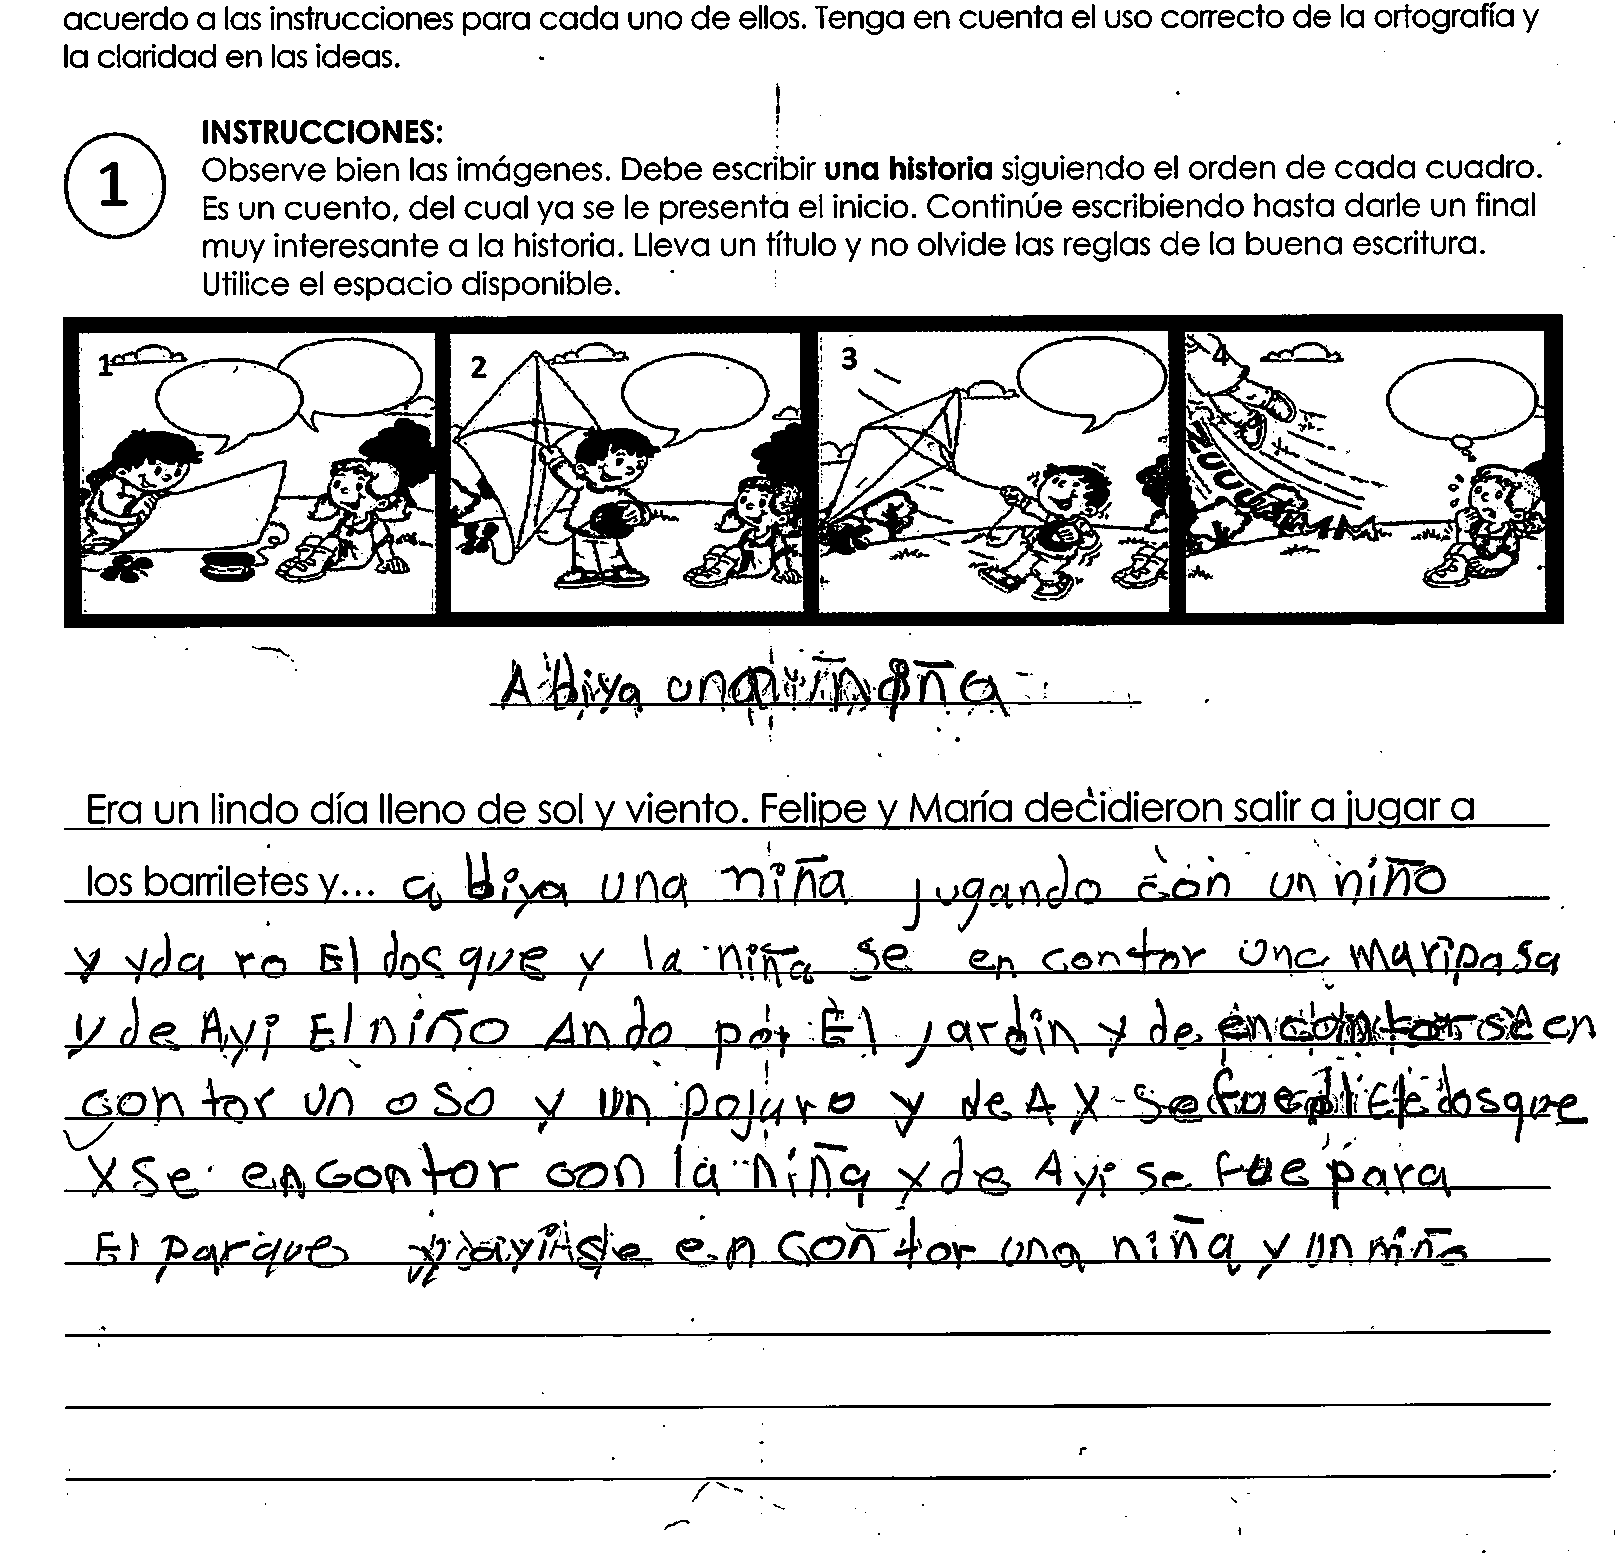 acuerdo a las instrucciones para cada uno de ellos. Tenga en cuenta el uso correcto de la ortografía y
la claridad en las ideas.
INSTRUCCIONES:
1
Observe bien las imágenes. Debe escribir una historia siguiendo el orden de cada cuadro.
Es un cuento, del cual ya se le presenta el inicio. Continúe escribiendo hasta darle un final
muy interesante a la historia. Lleva un título y no olvide las reglas de la buena escritura.
Utilice el espacio disponible.
1 2 3 4
A biya una niña
Era un lindo día lleno de sol y viento. Felipe y María decidieron salir a jugar a
los barriletes y... a biya una niña jugando con un niño
y yda ro El dosque y la niña se en contor una maripasa
y de Ayi El niño Ando por El jardin y de en
contor un oso y un pojaro y de A y se fue dosque
y se encontor con la niña y de Ayi se fue para
El parque se en contor una niña y un niño